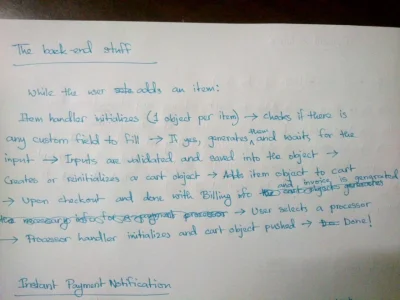 The back-end stuff
While the user adds an item:
Item handler initializes (1 object per item) → checks if there is
any custom field to fill → If yes, generates them and waits for the
input → Inputs are validated and saved into the object →
Creates or reinitializes a cart object → Adds item object to cart
→ Upon checkout and done with Billing info and invoice is generated
the necessary info for payment processor → User selects a processor
→ Processor handler initializes and cart object pushed → Done!
Instant Payment Notification